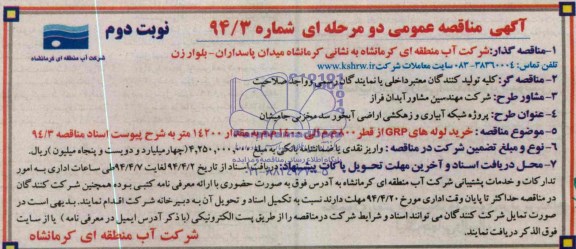 آگهی مناقصه عمومی دو مرحله ای شماره ۹۴/۳
نوبت دوم
شرکت آب منطقه ای کرمانشاه
۱-مناقصه گذار:شرکت آب منطقه ای کرمانشاه به نشانی کرمانشاه میدان پاسداران-بلوار زن
تلفن تماس: ۳۸۳۶۰۰۰۴-۰۸۳ سایت معاملات شرکت www.kshrw.ir
۲-مناقصه گر: کلیه تولید کنندگان معتبر داخلی یا نمایندگان رسمی و واجد صلاحیت
۳- مشاور طرح: شرکت مهندسین مشاور آبدان فراز
۴- عنوان طرح: پروژه شبکه آبیاری و زهکشی اراضی آبخور سد مخزنی جامیشان
۵-موضوع مناقصه : خرید لوله های GRP از قطر ۸۰۰ م م الی ۱۴۰۰ م م به مقدار ۱۴۲۰۰ متر به شرح پیوست اسناد مناقصه ۹۴/۳
۶- نوع و مبلغ تضمین شرکت در مناقصه : واریز نقدی یا ضمانتنامه بانکی به مبلغ ۴,۲۵۰,۰۰۰,۰۰۰ (چهار میلیارد و دویست و پنجاه میلیون )ریال.
۷- محل دریافت اسناد و آخرین مهلت تحویل پاکات پیشنهاد: دریافت اسناد از تاریخ ۹۴/۴/۲ لغایت ۹۴/۴/۷ طی ساعات اداری به امور
تدارکات و خدمات پشتیبانی شرکت آب منطقه ای کرمانشاه به آدرس فوق به صورت حضوری با ارائه معرفی نامه کتبی بوده همچنین شرکت کنندگان
در مناقصه حداکثر تا پایان وقت اداری مورخ ۹۴/۴/۲۰ مهلت دارند نسبت به تکمیل اسناد و تحویل آن به دبیرخانه شرکت اقدام نمایند. بدیهی است در
صورت تمایل شرکت کنندگان می توانند اسناد و شرایط شرکت در مناقصه را از طریق پست الکترونیکی (با ذکر آدرس ایمیل در معرفی نامه ) یا از سایت
فوق الذکر دریافت نمایند.
شرکت آب منطقه ای کرمانشاه